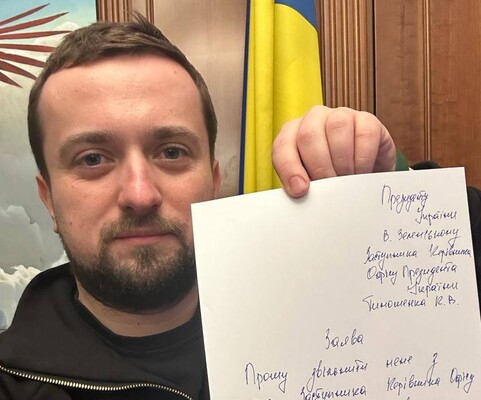 Президенту
України
В. Зеленському
Заступника Керівника
Офісу Президента
України
Тимошенка К.В.
Заява
Прошу звільнити мене з
Заступника Керівника Офісу